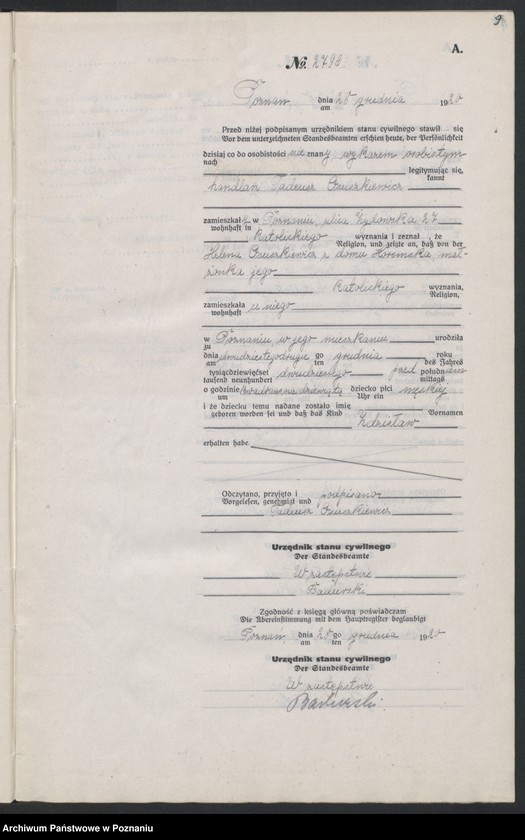 9
A.
№ 2793
Poznań dnia 28 grudnia 1920
am
Przed niżej podpisanym urzędnikiem stanu cywilnego stawił się
Vor dem unterzeichneten Standesbeamten erschien heute, der Persönlichkeit
dzisiaj co do osobistości nie znany wykazem osobistym
nach
legitymując się,
kannt
handlarz Tadeusz
zamieszkały w Poznaniu, ulica Żydowska 27
wohnhaft in
katolickiego wyznania i zeznał, że
Religion, und zeigte an, daß von der
Helena z domu mał-
żonka jego
katolickiego wyznania,
Religion,
zamieszkała u niego
wohnhaft
w Poznaniu, w jego mieszkaniu urodziła
zu
dnia dwudziestego drugiego grudnia roku
am ten des Jahres
tysiącdziewięćset dwudziestego przed południem
tausend neunhundert mittags
o godzinie dziewiątej dziecko płci męskiej
um Uhr ein
i że dziecku temu nadane zostało imię
geboren worden sei und daß das Kind Vornamen
Zdzisław
erhalten habe.
Odczytano, przyjęto i podpisano
Vorgelesen, genehmigt und
Tadeusz
Urzędnik stanu cywilnego
Der Standesbeamte
W zastępstwie
Zgodność z księgą główną poświadczam
Die Übereinstimmung mit dem Hauptregister beglaubigt
Poznań, dnia 28 go grudnia 1920
am ten
Urzędnik stanu cywilnego
Der Standesbeamte
W zastępstwie
Archiwum Państwowe w Poznaniu